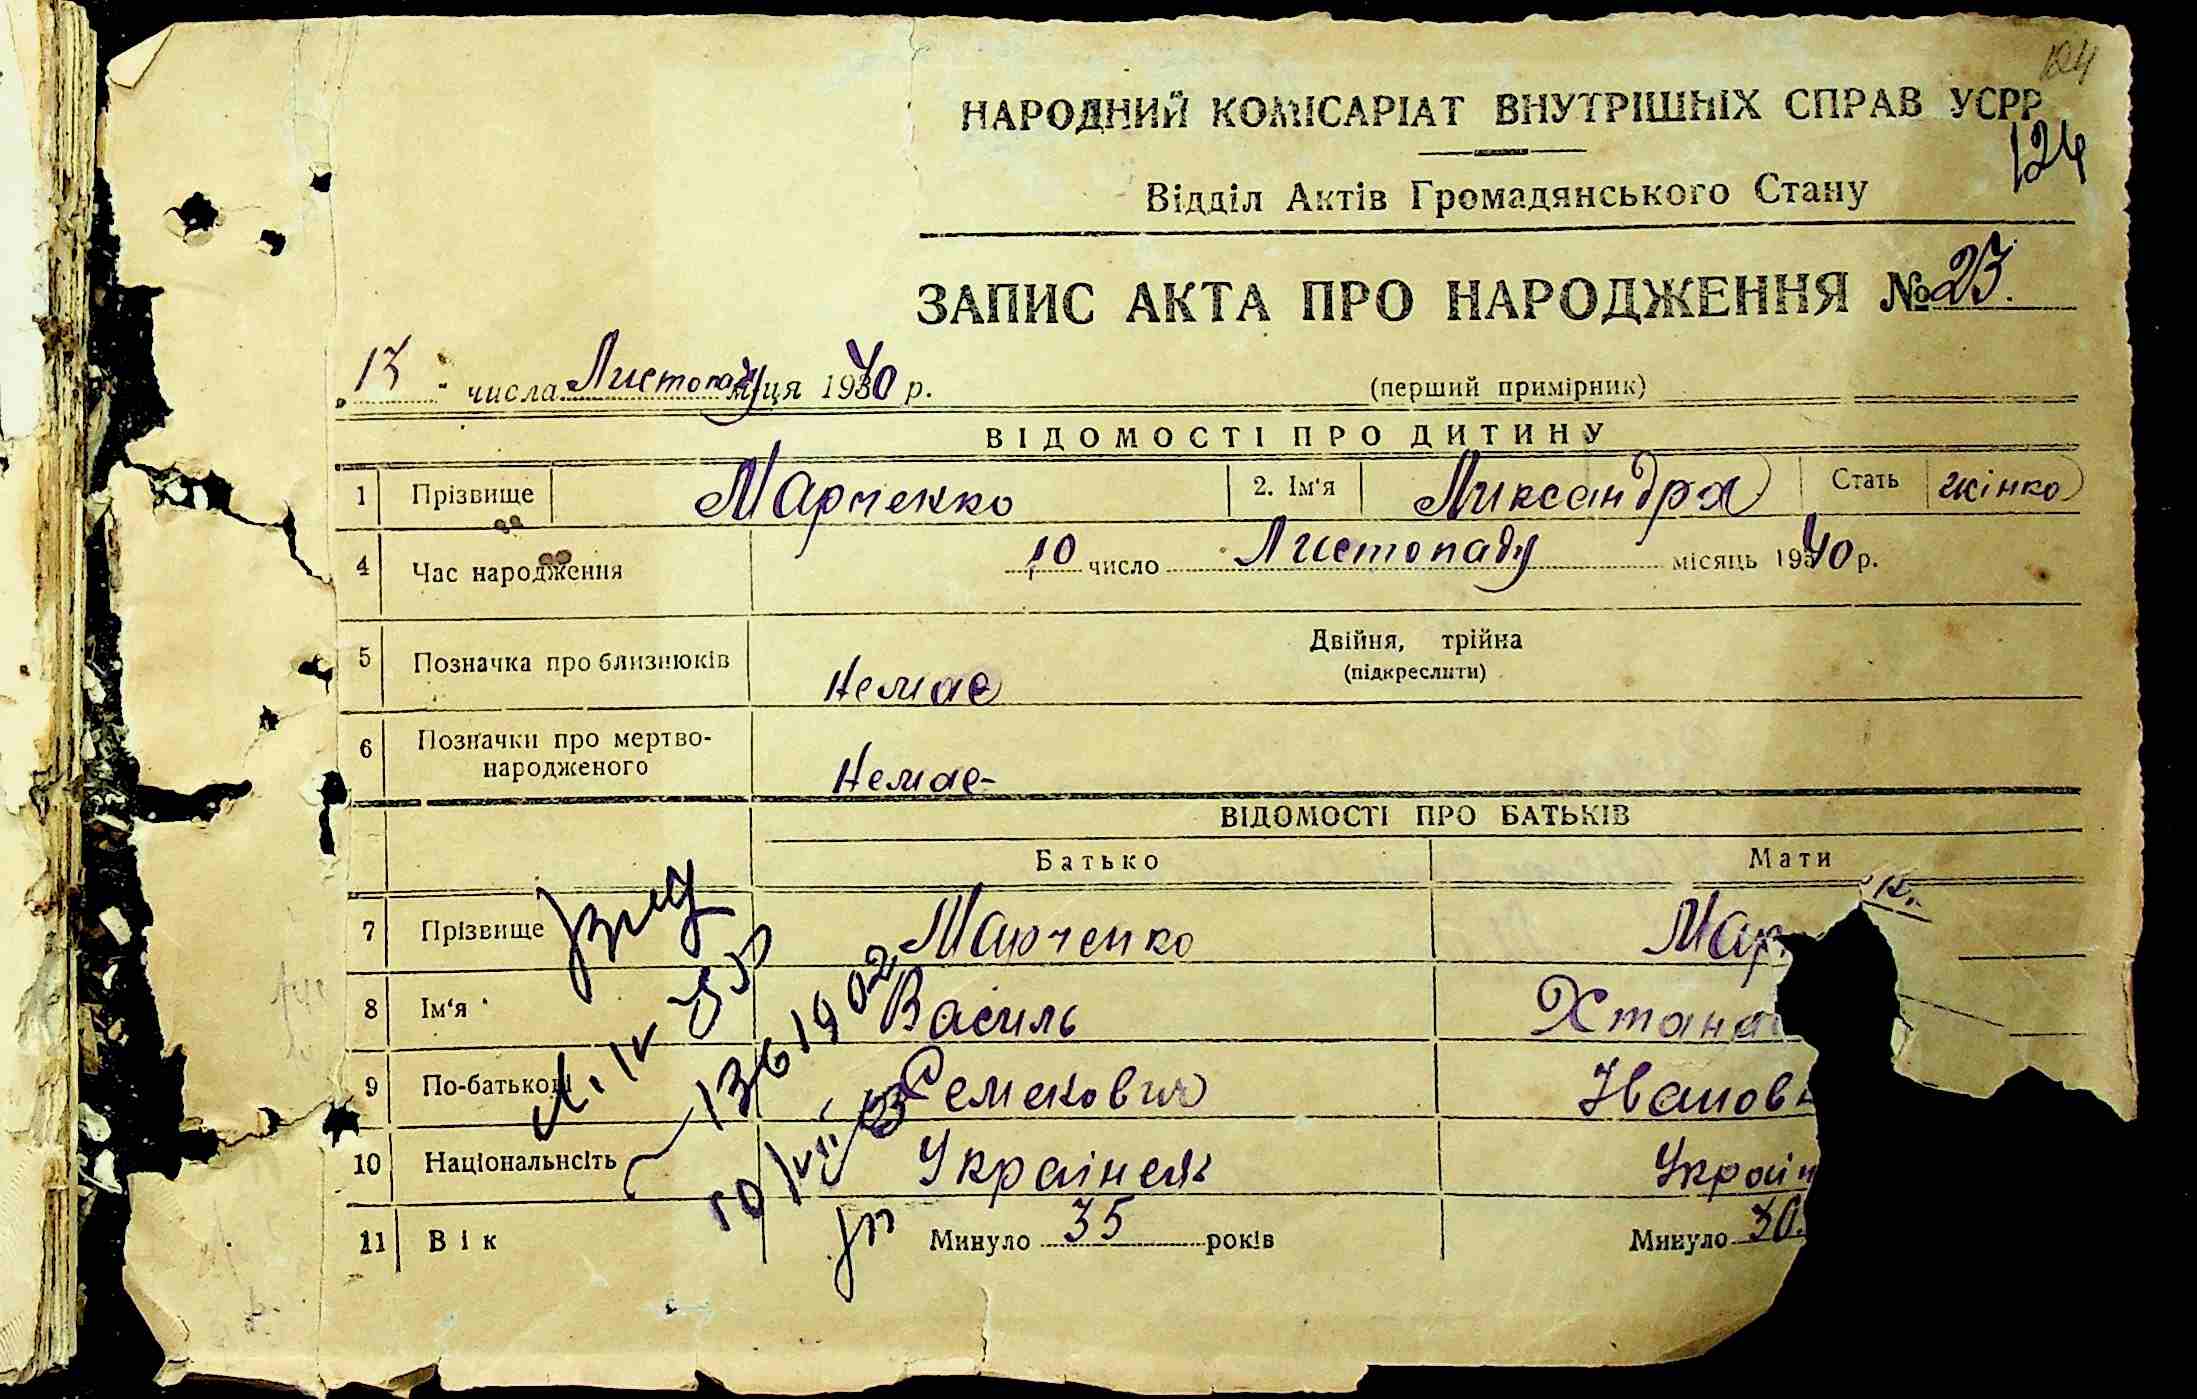 124
НАРОДНИЙ КОМІСАРІАТ ВНУТРІШНІХ СПРАВ УСРР
124
Відділ Актів Громадянського Стану
ЗАПИС АКТА ПРО НАРОДЖЕННЯ № 23.
"13" числа Листопад м/ця 1940 р. (перший примірник)
ВІДОМОСТІ ПРО ДИТИНУ
1 Прізвище Марченко 2. Ім'я Ликсандра Стать жінко
4 Час народження 10 число Листопаду місяць 1940 р.
5 Позначка про близнюків Немає Двійня, трійна
(підкреслити)
6 Позначки про мертво-
народженого Немає-
ВІДОМОСТІ ПРО БАТЬКІВ
Батько Мати
7 Прізвище Марченко Мар
8 Ім'я Василь
9 По-батькові Семенович Іванов
10 Національність Українець Україн
11 Вік Минуло 35 років Минуло 30.